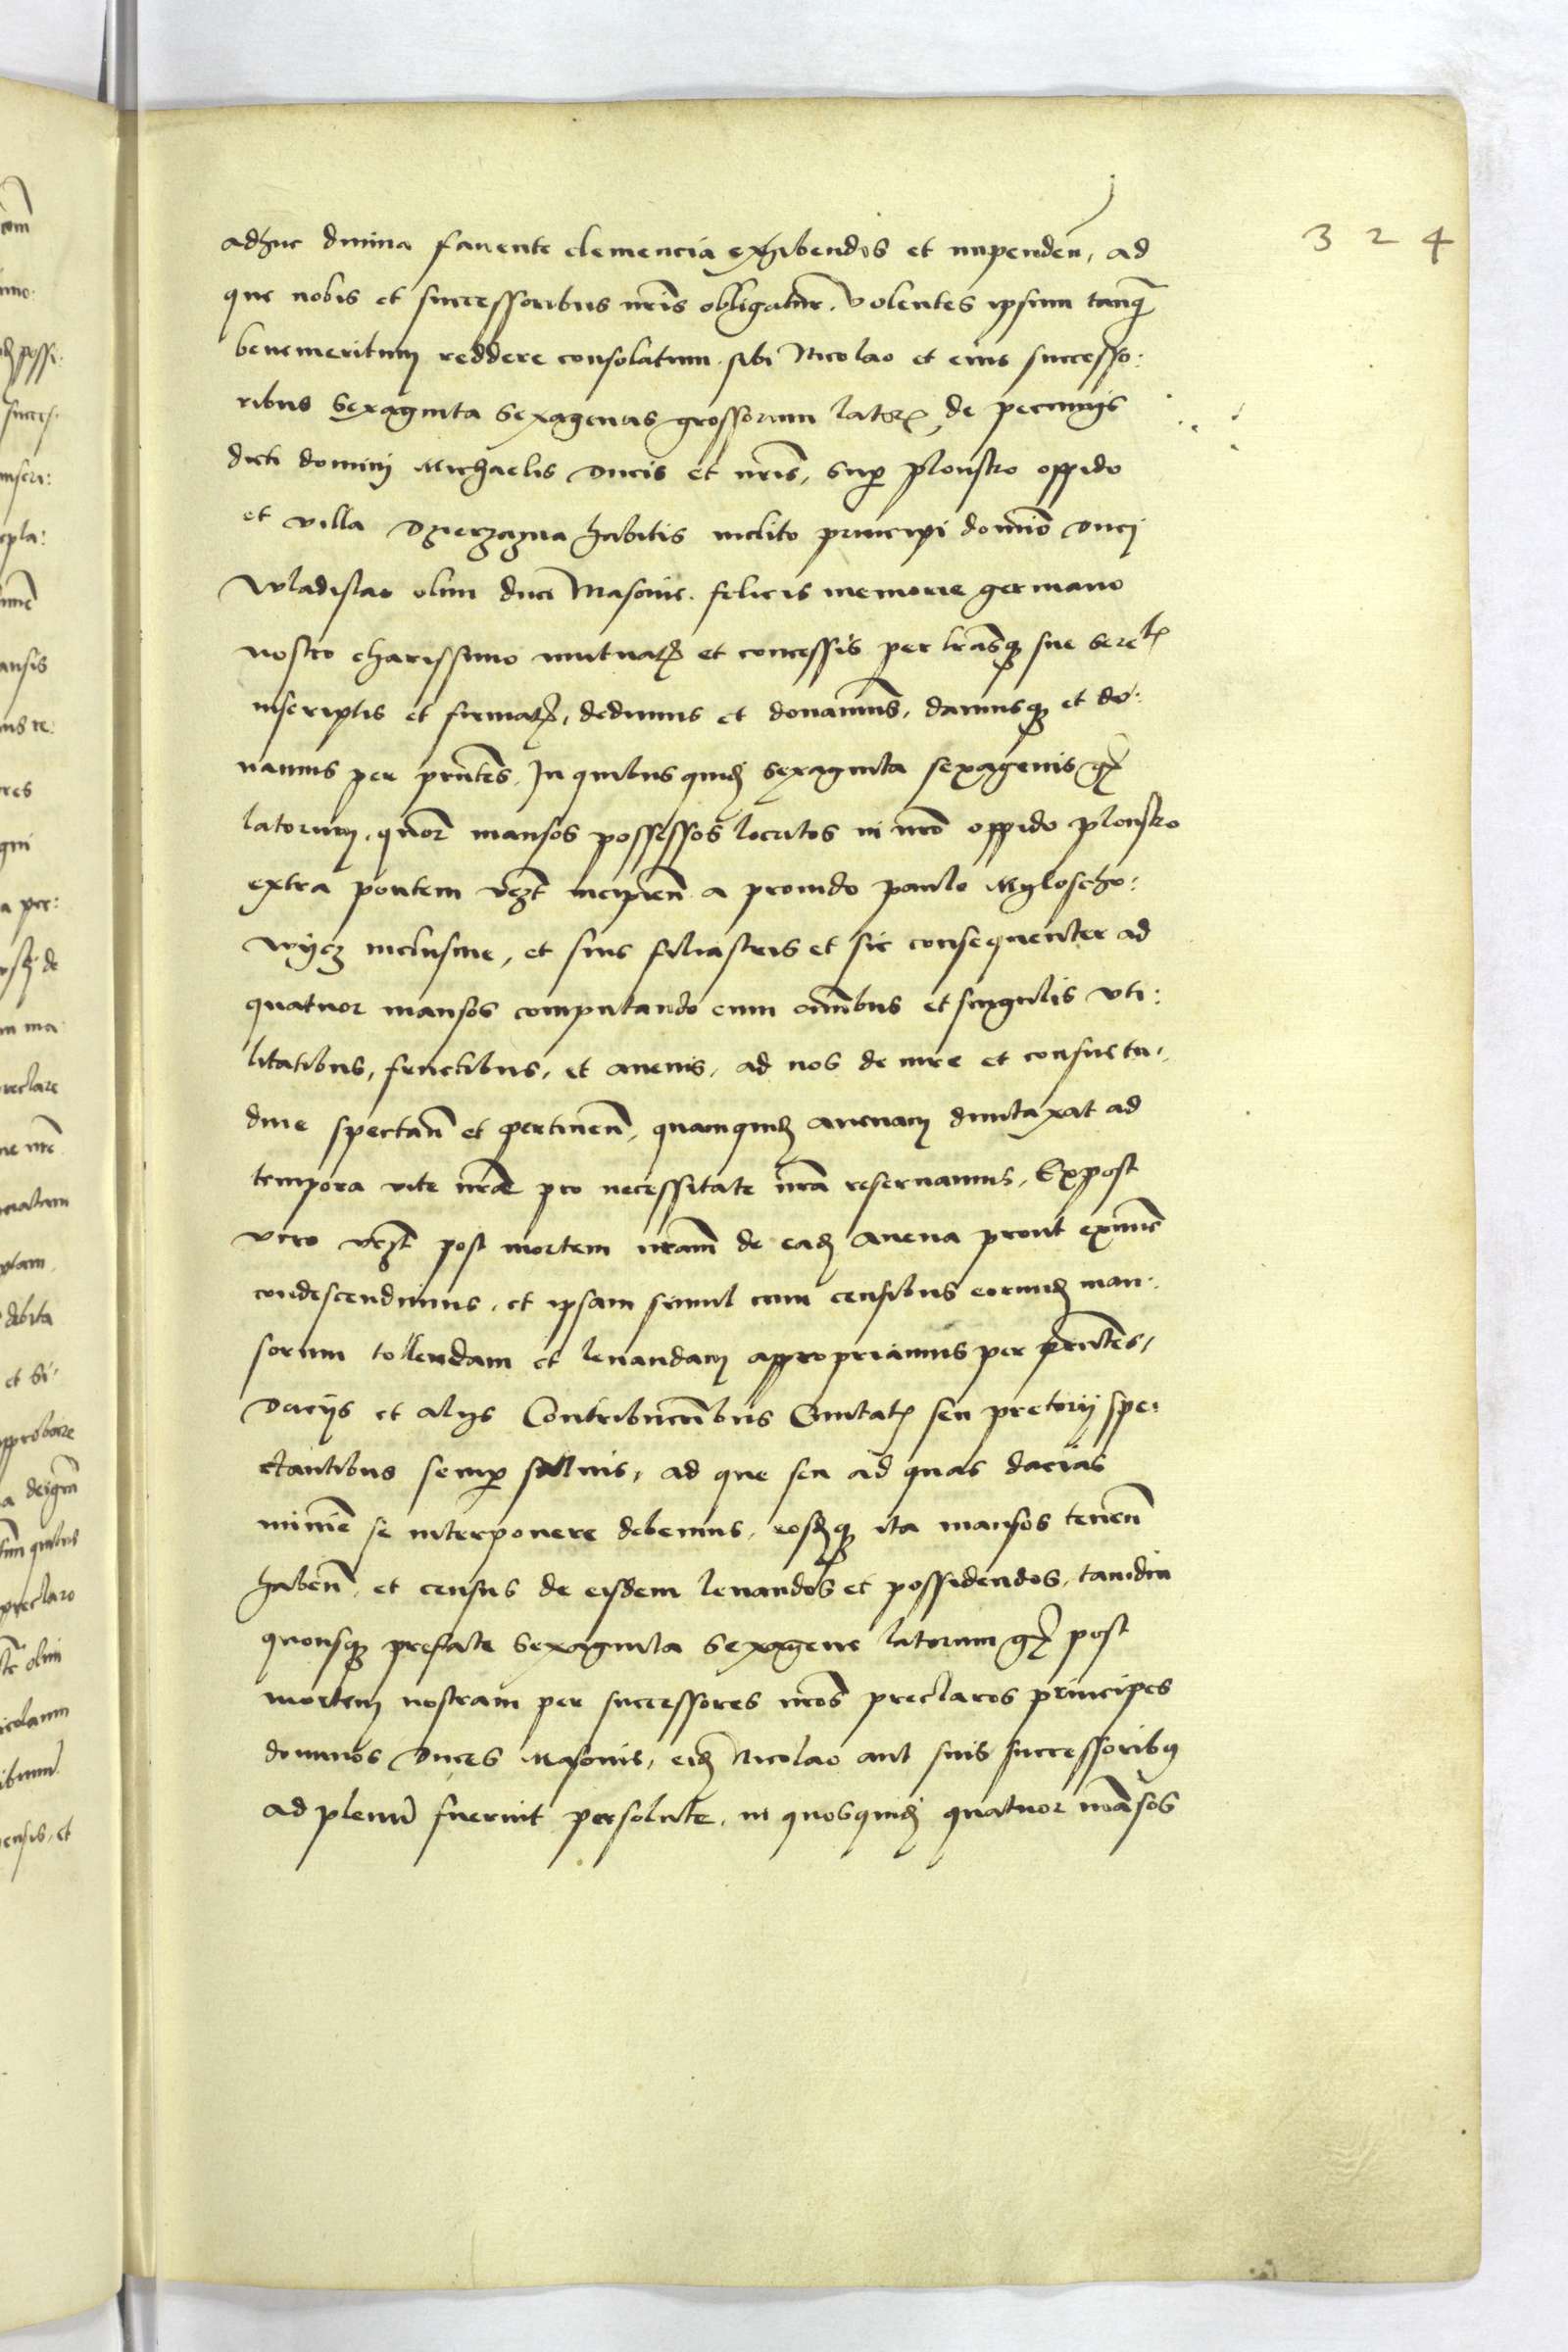 324
adhuc diuina fauente clemencia exhibendis et impenden, ad
que nobis et successoribus nris obligatur. Volentes ipsum tanq
benemeritum reddere consolatum. sibi Nicolao et eius successo:
ribus Sexaginta Sexagenas grossorum lator, de pecunijs
dicti domini Michaelis Ducis et nris, sup Plonsko oppido
et villa Dzierzazna habitis inclito principi domino Duci
Wladislao olim duci Masouie. felicis memorie germano
nostro charissimo mutuat et concessis per lrasq sue Seret
inscriptis et firmat, dedimus et donauimus, damusq et do:
namus per pntes. In quibus quid Sexaginta sexagenis gr
latorum, quor mansos possessos locatos in nro oppido plonsko
extra pontem vzt incipien a prouido paulo Myloscho:
wycz inclusiue, et suis filiastris et sic consequenter ad
quatuor mansos computando cum omnibus et singulis vti:
litatibus, fructibus, et auenis, ad nos de iure et consuetu,
dine spectan et pertinen, quamquid auenam duntaxat ad
tempora vite nre pro necessitate nra reseruamus, Expost
vero vzt post mortem nram de ead auena prout exnunc
condescendimus, et ipsam simul cum censibus eorund man:
sorum tollendam et leuandam appropriamus per pntes,
Dacijs et alijs Contribucionibus Ciuitat seu pretorij spe:
ctantibus semp saluis, ad que seu ad quas dacias
minime se interponere debemus, eosdq ita mansos tenen
haben, et census de eisdem leuandos et possidendos, tamdiu
quousq prefate Sexaginta Sexagene latorum gr post
mortem nostram per successores nros preclaros principes
dominos Duces Masouie, eid Nicolao aut suis successoribus
ad plenum fuerint persolute, in quosquid quatuor mansos